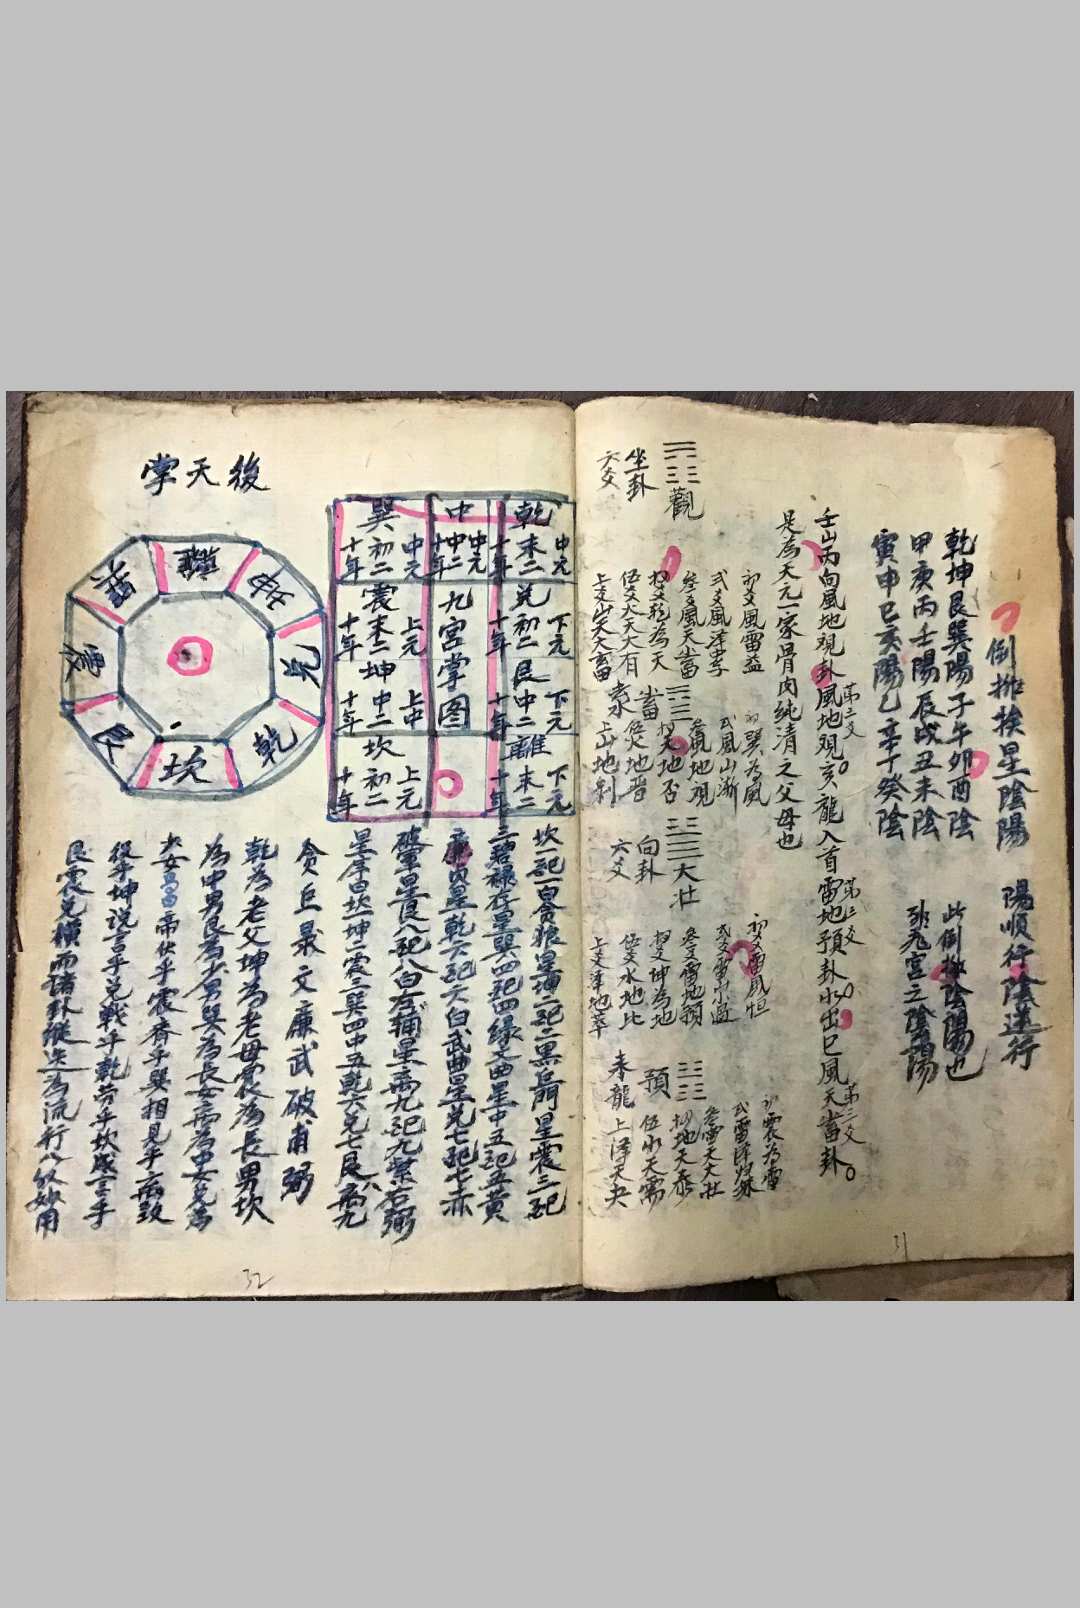 倒排挨星陰陽 陽順行陰逆行
乾坤艮巽陽子午卯酉陰
甲庚丙壬陽辰戌丑未陰
寅申巳亥陽乙辛丁癸陰
此倒排陰陽也
九宮之陰陽
第三爻 第三爻 第三爻
壬山丙向風地觀卦風地觀亥龍入首雷地預卦水出巳風天畜卦
是為天元一家骨肉純清之父母也
觀
坐卦
六爻
初爻風雷益
弍爻風澤中孚
叁爻風天小畜
四爻乾為天
伍爻火天大有
上爻山天大畜
畜
初巽為風
弍風山漸
叁風地觀
四天地否
伍火地晉
上山地剝
大壯
向卦
六爻
初爻雷風恒
弍爻雷小過
叁爻雷地預
四爻坤為地
伍爻水地比
上爻澤地萃
預
來龍
初震為雷
弍雷澤歸妹
叁雷天大壯
四地天泰
伍水天需
上澤天夬
31
後天掌
離
坤
兌
乾
坎
艮
震
巽
乾末二十年 中元
兌初二十年 下元
艮中二十年 下元
離末二十年 下元
中中二十年 中元
九宮掌图
巽初二十年 中元
震末二十年 上元
坤中二十年 上中
坎初二十年 上元
坎一紀一白貪狼星坤二紀二黑巨門星震三紀
三碧祿存星巽四紀四綠文曲星中五紀五黃
廉貞星乾六紀六白武曲星兌七紀七赤
破軍星艮八紀八白左輔星离九紀九紫右弼
星序曰坎一坤二震三巽四中五乾六兌七艮八离九
貪巨祿文廉武破甫弼
乾為老父坤為老母震為長男坎
為中男艮為少男巽為長女离為中女兌為
少女 帝伏乎震齊乎巽相見乎离致
役乎坤說言乎兌戰乎乾勞乎坎成言乎
艮震兌橫而諸卦縱 為流行八 妙用
32